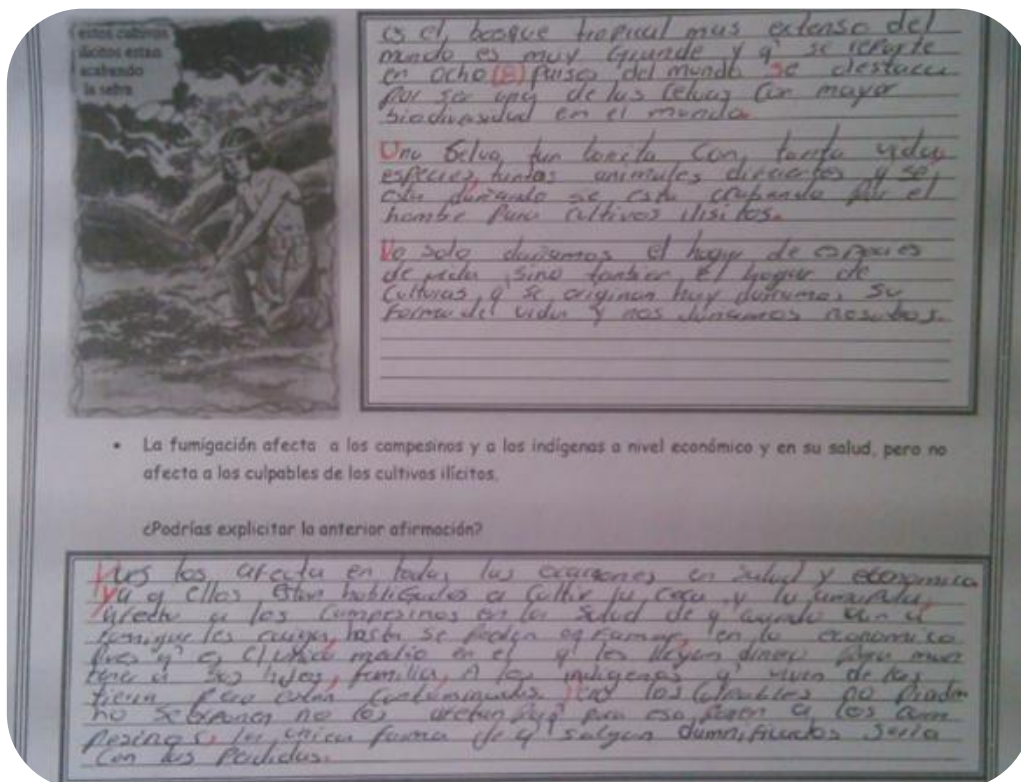 estos cultivos
ilicitos estan
acabando
la selva
es el bosque tropical mas extenso del
mundo es muy Grande y q' se reparte
en ocho (8) paises del mundo se destaca
por ser una de las selvas con mayor
biodiversidad en el mundo.
Una Selva tan bonita con tanta vida
especies, tantos animales diferentes y se
esta dañando se esta acabando por el
hombre para cultivos ilisitos.
No solo dañamos el hogar de especies
de vida, sino tambien el hogar de
Culturas, q' se originan hay dañamos su
forma del vida y nos dañamos nosotros.
• La fumigación afecta a los campesinos y a los indígenas a nivel económico y en su salud, pero no
afecta a los culpables de los cultivos ilícitos.
¿Podrías explicitar la anterior afirmación?
Pues los afecta en todas las en salud y economica
ya q ellos estan hobligados a cultivar la coca y la amapola,
afecta a los campesinos en la salud de q'
les caiga, hasta se pueden en lo economico
pues q' es el unico medio en el q' les llegan dinero para
a sus hijos, familia, A los indigenas q' viven de las
tierra pero estan contaminados. los culpables no
no se exponen no los afectan q' para eso ponen a los cam
pesinos, la unica forma de q' salgan damnificados seria
Con las Perdidas.